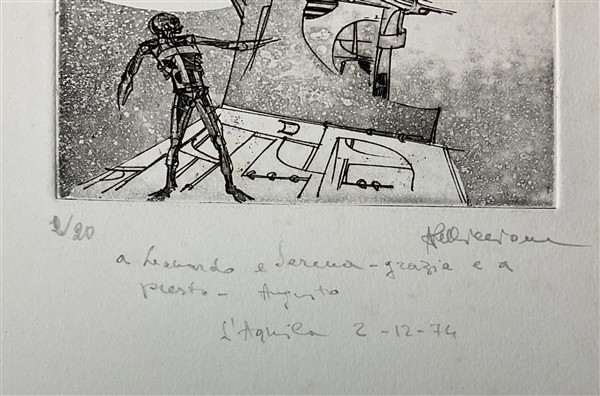 2/20
a Leonardo e Serena - grazie e a
presto - Augusto
L'Aquila 2-12-74